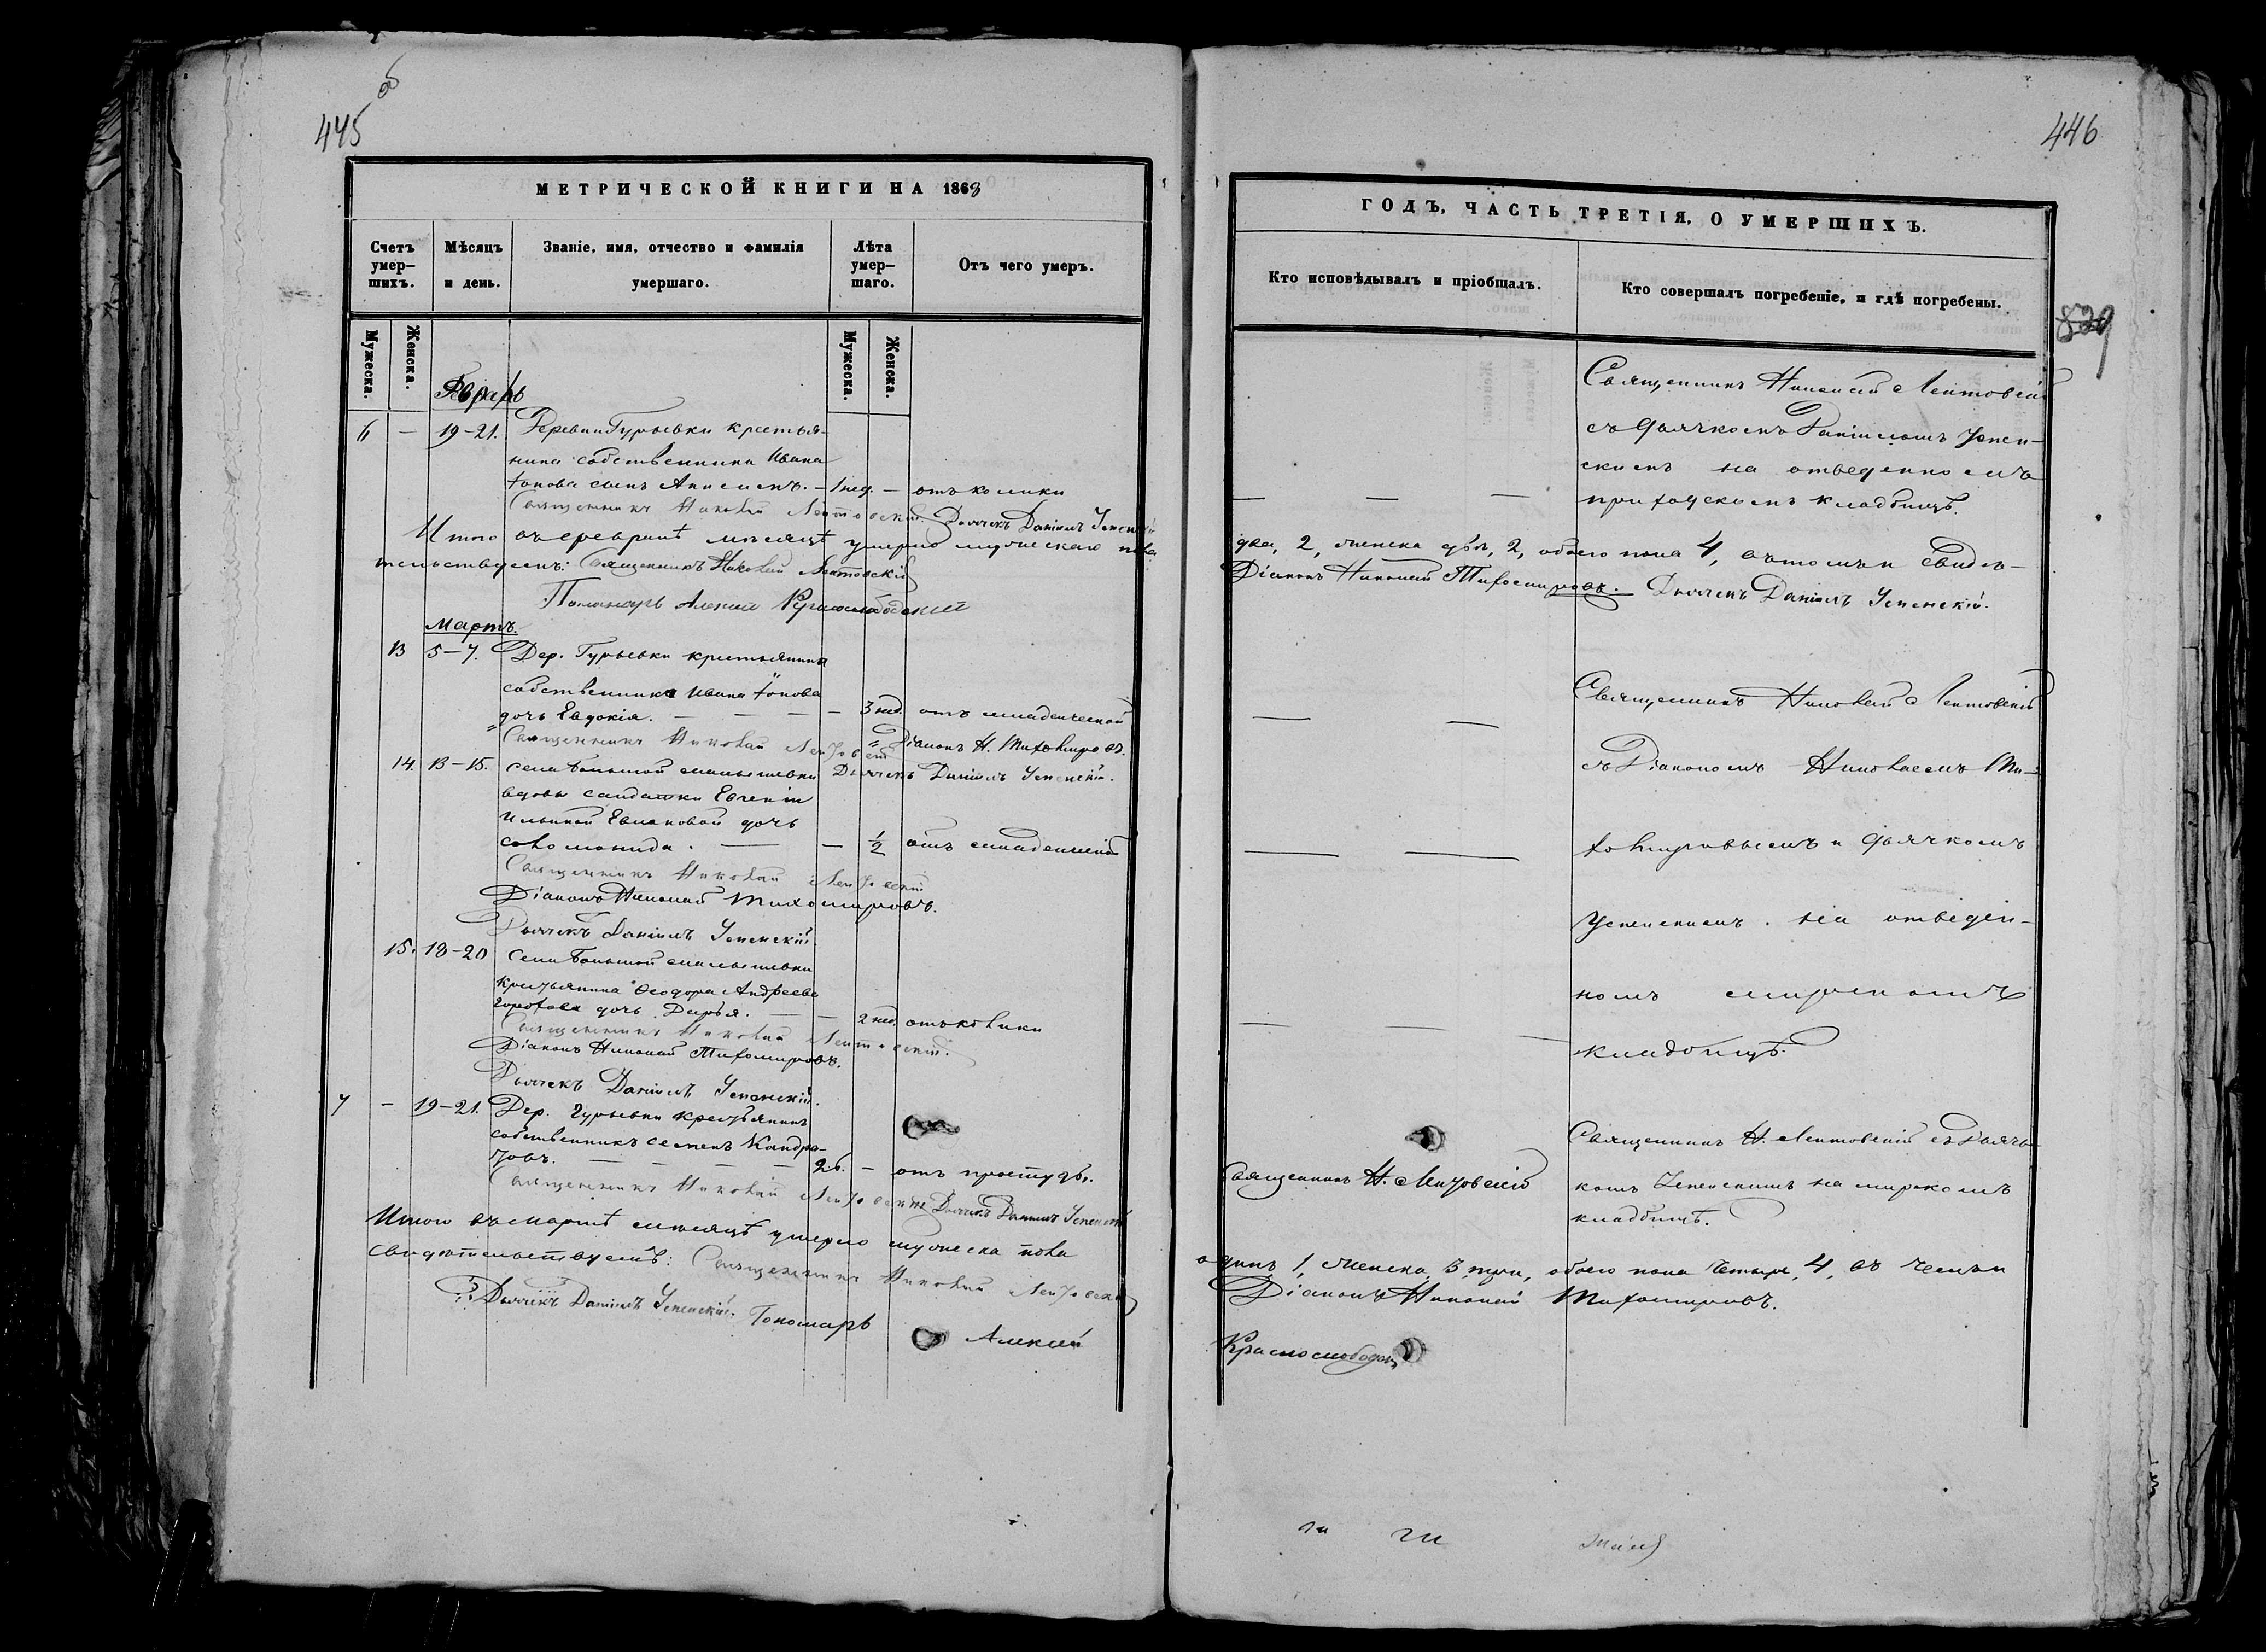 445
об
МЕТРИЧЕСКОЙ КНИГИ НА 1868
Счетъ умер-шихъ.
Мѣсяцъ и день.
Званіе, имя, отчество и фамилія умершаго.
Лѣта умер-шаго.
Отъ чего умеръ.
Мужеска.
Женска.
Мужеска.
Женска.
Февраль
6 — 19-21. Деревни Гурьевки крестья-
нина собственника Ивана
сынъ — 1 нед. — отъ колики
Священникъ Николай Лентовскій. Дьячекъ Даніилъ Успенскій
Итого въ февралѣ мѣсяцѣ умерло мужескаго пола
тельствуемъ: Священникъ Николай Лентовскій
Пономарь Алексій Краснослободскій
Мартъ.
13 5-7. Дер. Гурьевки крестьянина
собственника Ивана
дочь Евдокія. — — — — 3 нед. отъ младенческой
Священникъ Николай Лентовскій Діаконъ Н. Тихомировъ.
14. 13-15. Села Большой Дьячекъ Даніилъ Успенскій.
вдовы солдатки Евгеніи
Ильиной дочь
Соломонида. — — 1/2 отъ младенческой
Священникъ Николай Лентовскій
Діаконъ Николай Тихомировъ.
Дьячекъ Даніилъ Успенскій
15. 18-20 Села Большой
крестьянина Ѳеодора Андреева
дочь Дарья. — — 2 нед. отъ колики
Священникъ Николай Лентовскій.
Діаконъ Николай Тихомировъ.
Дьячекъ Даніилъ Успенскій.
7 — 19-21. Дер. Гурьевки крестьянинъ
собственникъ Семенъ Кандра-
товъ. — — — — 26. — отъ простуды.
Священникъ Николай Лентовскій Дьячекъ Даніилъ Успенскій
Итого въ мартѣ мѣсяцѣ умерло мужеска пола
свидѣтельствуемъ: Священникъ Николай Лентовскій
Дьячекъ Даніилъ Успенскій. Пономарь Алексій
446
ГОДЪ, ЧАСТЬ ТРЕТІЯ, О УМЕРШИХЪ.
Кто исповѣдывалъ и пріобщалъ.
Кто совершалъ погребеніе, и гдѣ погребены.
829
Священникъ Николай Лентовскій
съ дьячкомъ Даніиломъ Успен-
скимъ на отведенномъ
приходскомъ кладбищѣ.
два, 2, женска двѣ, 2, обоего пола 4, въ томъ и свидѣ-
Діаконъ Николай Тихомировъ. Дьячекъ Даніилъ Успенскій.
Священникъ Николай Лентовскій
съ Діакономъ Николаемъ Ти-
хомировымъ и дьячкомъ
Успенскимъ на отведен-
номъ мирскомъ
кладбищѣ.
Священникъ Н. Лентовскій
Священникъ Н. Лентовскій съ дьяч-
комъ Успенскимъ на мирскомъ
кладбищѣ.
одинъ 1, женска 3 три, обоего пола четыре, 4, въ чемъ и
Діаконъ Николай Тихомировъ.
Краснослободскій